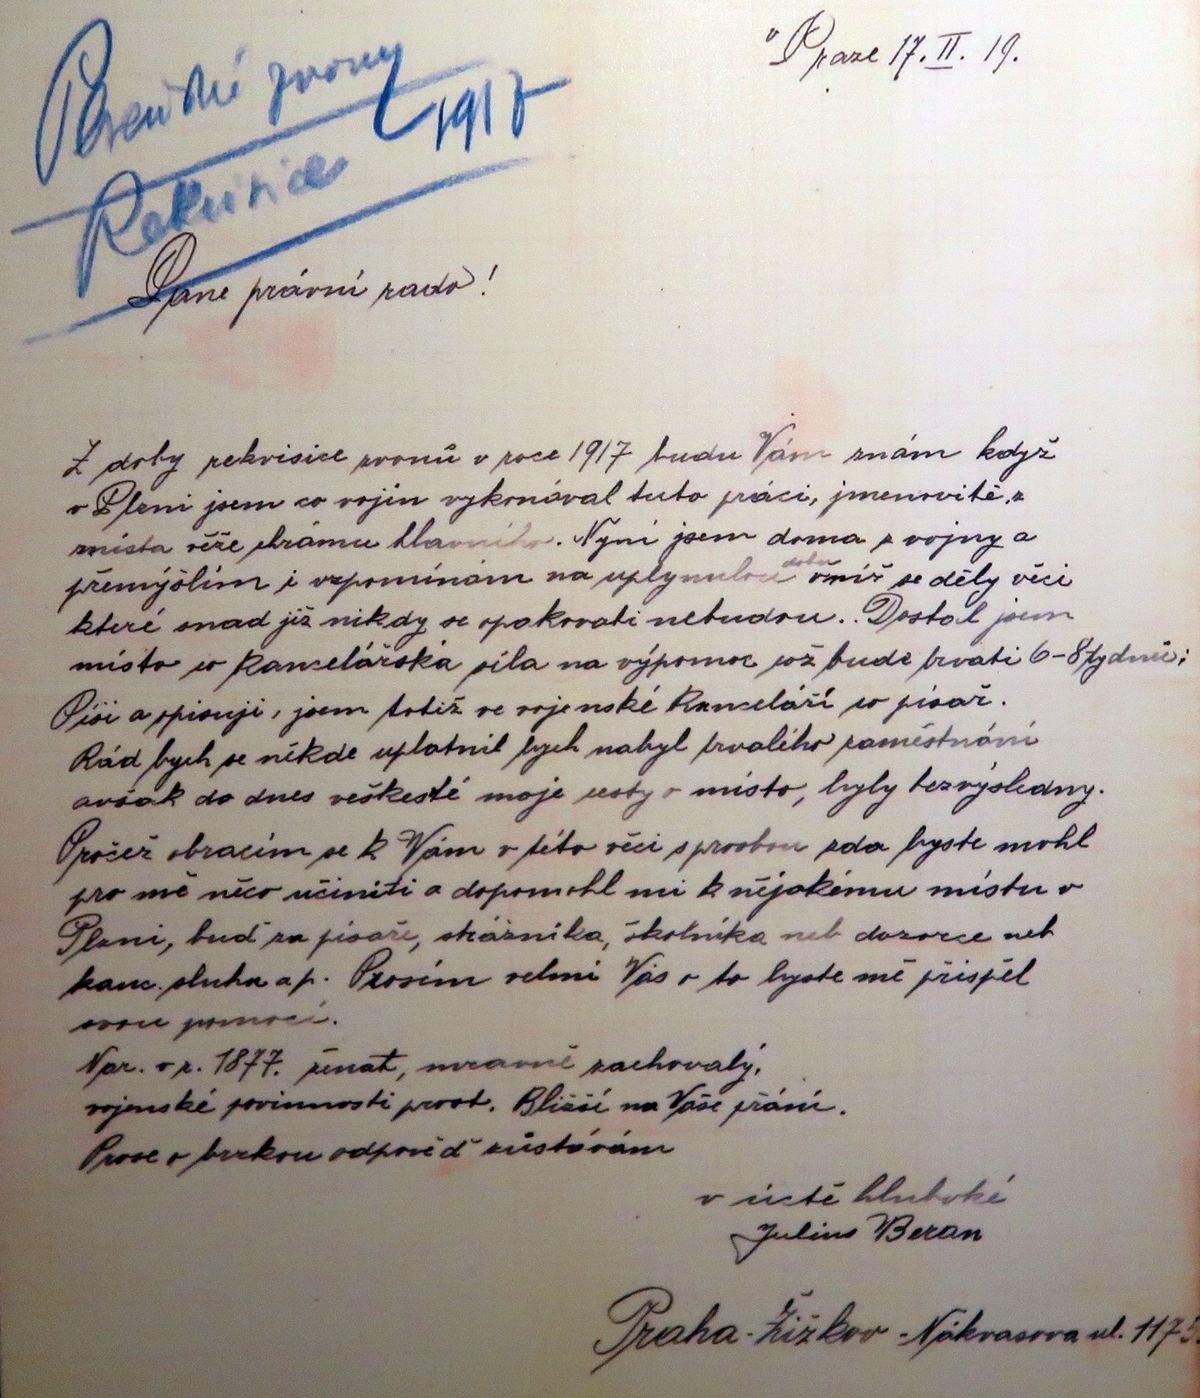 v Praze 17. II. 19.
Plzeňské zvony
1917
Rekvisice
Pane právní rado!
Z doby rekvisice zvonů v roce 1917 budu Vám znám když
v Plzni jsem co vojín vykonával tuto práci, jmenovitě z
místa věže chrámu hlavního. Nyní jsem doma z vojny a
přemýšlím i vzpomínám na uplynulou dobu v níž se děly věci
které snad již nikdy se opakovati nebudou.. Dostal jsem
místo co kancelářská síla na výpomoc což bude trvati 6-8 týdnů;
Píši a opisuji, jsem totiž ve vojenské kanceláři co písař.
Rád bych se někde uplatnil bych nabyl trvalého zaměstnání
avšak do dnes veškeré moje cesty o místo, byly bezvýsledny.
Pročež obracím se k Vám v této věci s prosbou zda byste mohl
pro mě něco učiniti a dopomohl mi k nějakému místu v
Plzni, buď za písaře, strážníka, školníka neb dozorce neb
kanc. sluha a p. Prosím velmi Vás o to byste mě přispěl
svou pomocí.
Nar. v r. 1877. ženat, mravně zachovalý,
vojenské povinnosti prost. Bližší na Vaše přání.
Prose o brzkou odpověď zůstávám
v úctě hluboké
Julius Beran
Praha-Žižkov - Nákvasova ul. 1175.